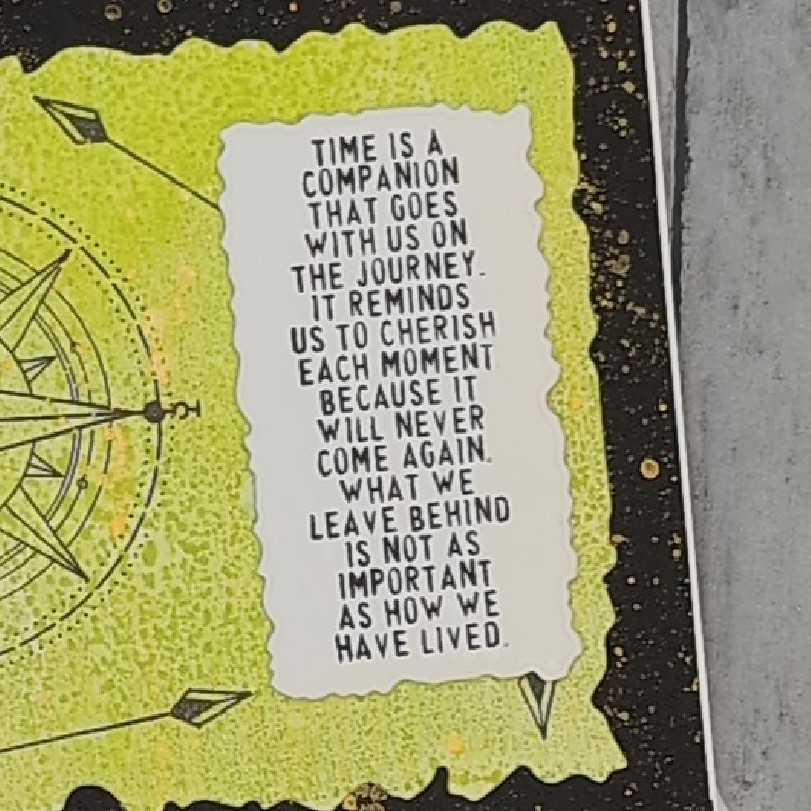 TIME IS A
COMPANION
THAT GOES
WITH US ON
THE JOURNEY.
IT REMINDS
US TO CHERISH
EACH MOMENT
BECAUSE IT
WILL NEVER
COME AGAIN.
WHAT WE
LEAVE BEHIND
IS NOT AS
IMPORTANT
AS HOW WE
HAVE LIVED.